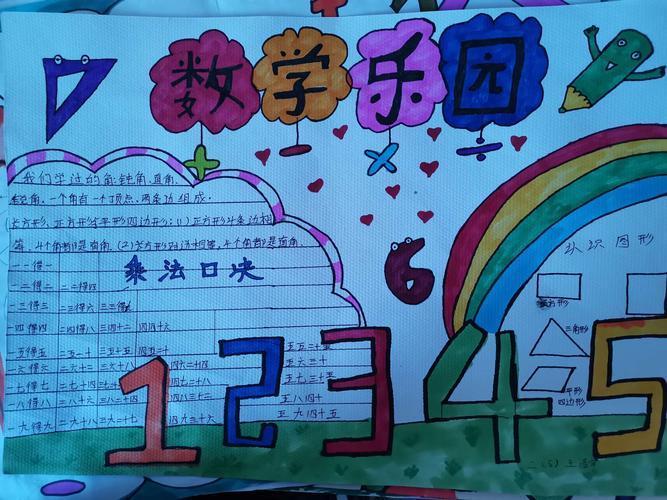 数学乐园
+ − × ÷
我们学过的角:钝角、直角、
锐角。一个角有一个顶点,两条边组成。
长方形、正方形是平行四边形;(1)正方形4条边相
等,4个角都是直角。(2)长方形对边相等,4个角都是直角。
乘法口决
一一得一
一二得二 二二得四
一三得三 二三得六 三三得九
一四得四 二四得八 三四十二 四四十六
一五得五 二五一十 三五十五 四五二十 五五二十五
一六得六 二六十二 三六十八 四六二十四 五六三十
一七得七 二七十四 三七二十一 四七二十八 五七三十五
一八得八 二八十六 三八二十四 四八三十二 五八四十
一九得九 二九十八 三九二十七 四九三十六 五九四十五
6
认识图形
长方形
三角形
平形
四边形
1 2 3 4 5
二(5)王